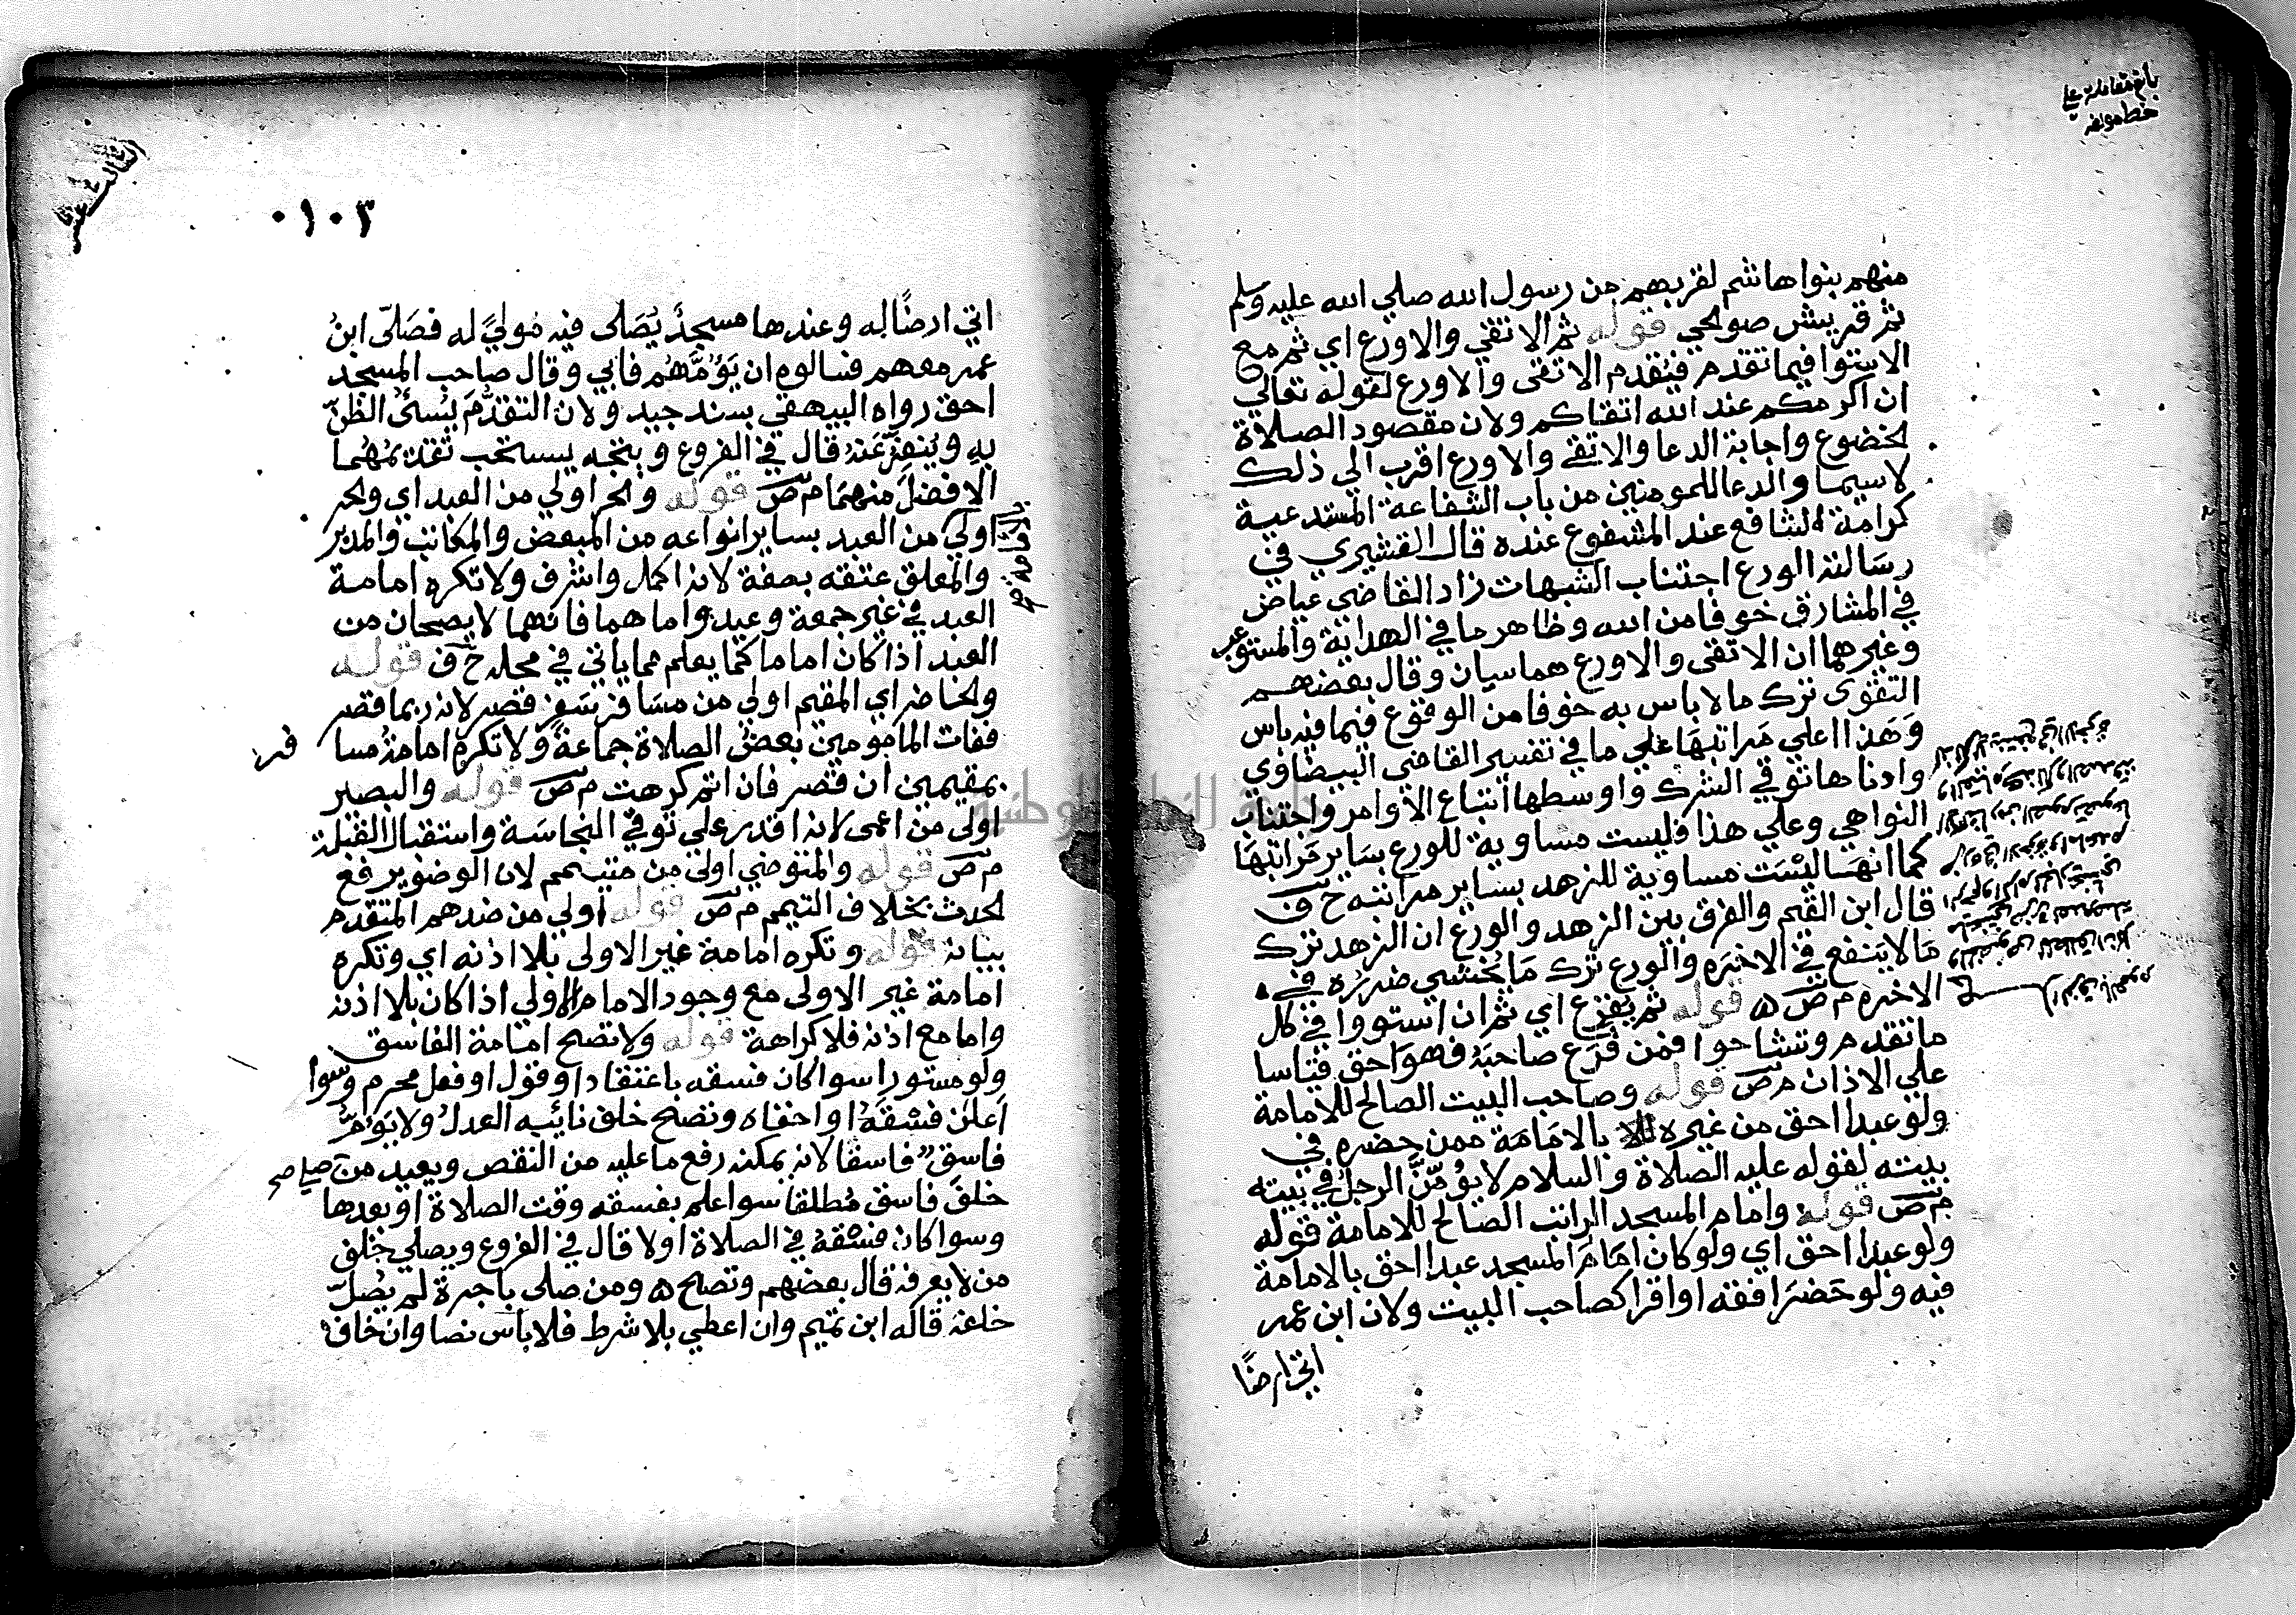 بلغ مقابلة علي
خط مؤلفه
منهم بنوا هاشم لقربهم من رسول الله صلي الله عليه وسلم
ثم قريش صوالحي قوله ثم الاتقي والاورع اي ثم مع
الاستوا فيما تقدم فيقدم الاتقى والاورع لقوله تعالي
ان اكرمكم عند الله اتقاكم ولان مقصود الصلاة
الخضوع واجابة الدعا والاتقي والاورع اقرب الي ذلك
لاسيما والدعا للمومنين من باب الشفاعة المستدعية
كرامة الشافع عند المشفوع عنده قال القشيري في
رسالته الورع اجتناب الشبهات زاد القاضي عياض
في المشارق خوفا من الله وظاهر ما في الهداية والمستوعب
وغيرهما ان الاتقى والاورع هما سيان وقال بعضهم
التقوى ترك ما لا باس به خوفا من الوقوع فيما فيه باس
وهذا اعلي مراتبها علي ما في تفسير القاضي البيضاوي
وادناها توقي الشرك واوسطها اتباع الاوامر واجتناب
النواهي وعلي هذا فليست مساوية للورع بساير مراتبها
كما انها ليست مساوية للزهد بساير مراتبه ح ف
قال ابن القيم والفرق بين الزهد والورع ان الزهد ترك
ما لا ينفع في الاخره والورع ترك ما يخشي ضرره في
الاخره م ص ه قوله ثم يقرع اي ثم ان استووا في كل
ما تقدم وتشاحوا فمن قرع صاحبه فهو احق قياسا
علي الاذان م ص قوله وصاحب البيت الصالح للامامة
ولو عبدا احق من غيره بالامامة ممن حضره في
بيته لقوله عليه الصلاة والسلام لا يؤمن الرجل في بيته
م ص قوله وامام المسجد الراتب الصالح للامامة قوله
ولو عبدا احق اي ولو كان امام المسجد عبدا احق بالامامة
فيه ولو حضر افقه او اقرا كصاحب البيت ولان ابن عمر
اتي ارضا
الثالث عشر
٠١٠٣
اتي ارضا له وعندها مسجد يصلى فيه مولي له فصلى ابن
عمر معهم فسالوه ان يؤمهم فابي وقال صاحب المسجد
احق رواه البيهقي بسند جيد ولان التقدم يسئ الظن
به وينفر عنه قال في الفروع ويتجه يستحب تقديمهما
الافضل منهما م ص قوله والحر اولي من العبد اي والحر
اولي من العبد بساير انواعه من المبعض والمكاتب والمدبر
والمعلق عتقه بصفة لانه اكمل واشرف ولا تكره امامة
العبد في غير جمعة وعيد واما هما فانهما لا يصحان من
العبد اذا كان اماما كما يعلم مما ياتي في محله ح ف قوله
والحاضر اي المقيم اولي من مسافر سفر قصر لانه ربما قصر
ففات المامومين بعض الصلاة جماعة ولا تكره امامة مسا
فر
بمقيمين ان قصر فان اتم كرهت م ص قوله والبصير
اولى من اعمى لانه اقدر علي توقي النجاسة واستقبال القبلة
م ص قوله والمتوضي اولى من متيمم لان الوضو يرفع
الحدث بخلاف التيمم م ص قوله اولي من ضدهم المتقدم
بيانه قوله وتكره امامة غير الاولى بلا اذنه اي وتكره
امامة غير الاولى مع وجود الامام الاولي اذا كان بلا اذنه
واما مع اذنه فلا كراهة قوله ولا تصح امامة الفاسق
ولو مستورا سوا كان فسقه باعتقاد او قول او فعل محرم وسوا
اعلن فسقه او اخفاه وتصح خلف نائبه العدل ولا يؤم
فاسق فاسقا لانه يمكنه رفع ما عليه من النقص ويعيد من صلي صح
خلف فاسق مطلقا سوا علم بفسقه وقت الصلاة او بعدها
وسوا كان فسقه في الصلاة اولا قال في الفروع ويصلي خلف
من لا يعرفه قال بعضهم وتصح ه ومن صلى باجرة لم يصل
خلفه قاله ابن تميم وان اعطي بلا شرط فلا باس نصا وان خاف